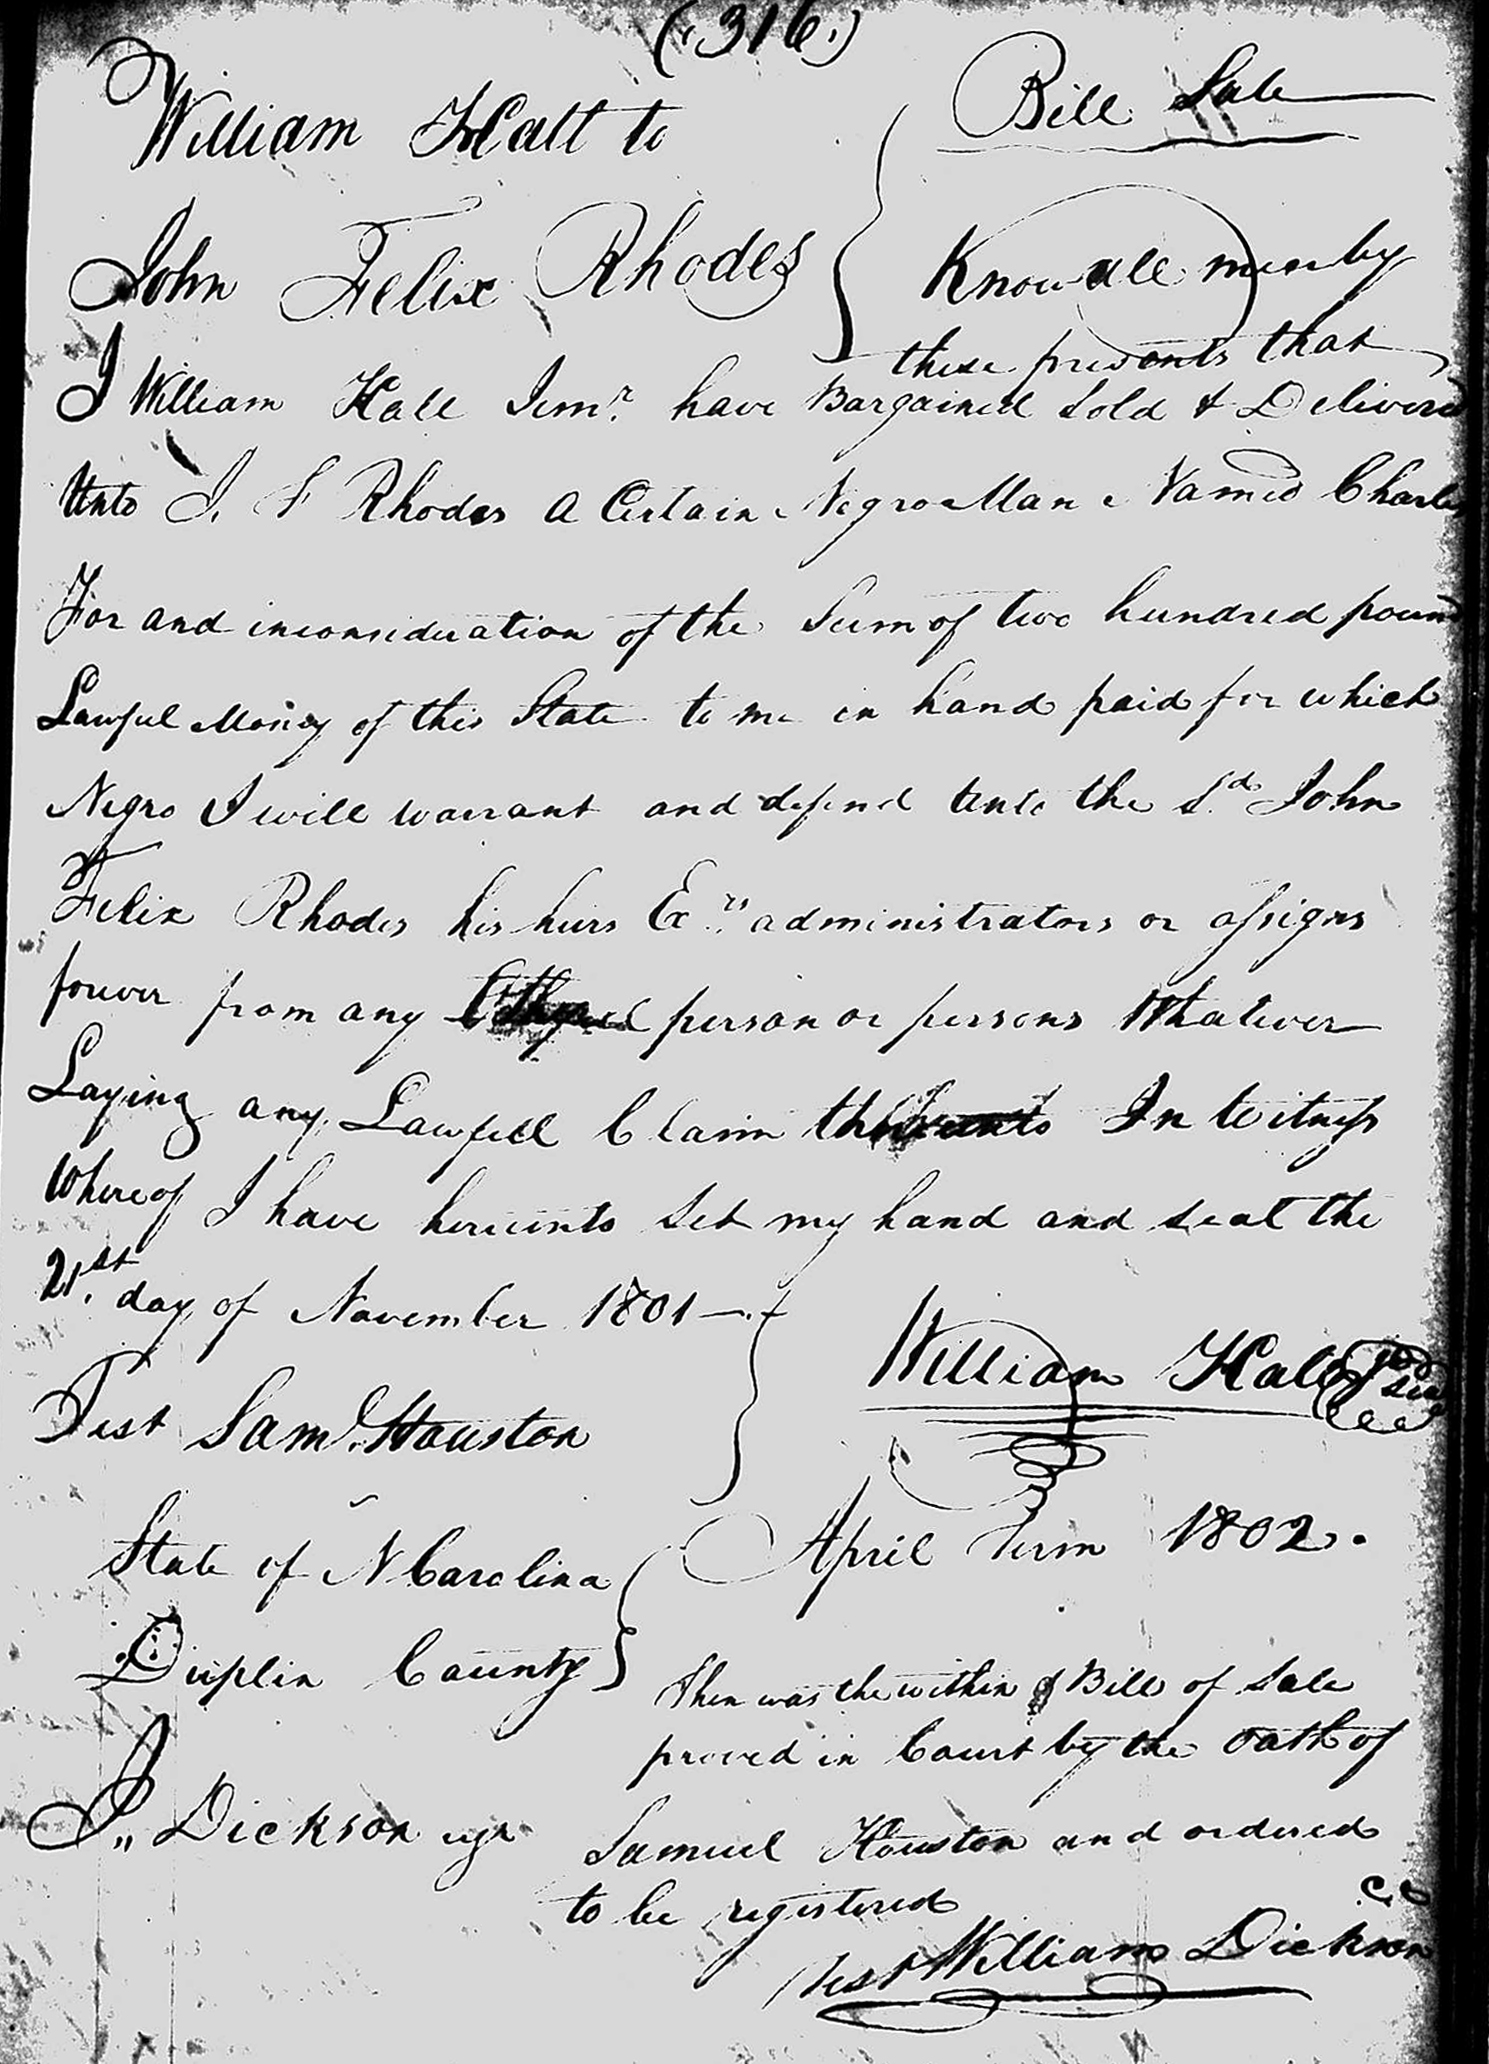 (316.)
William Hall to
Bill Sale
John Felix Rhodes
Know all men by
these presents that
I William Hall Senr. have Bargained Sold & Delivered
Unto J. F Rhodes a Certain Negro Man Named Charles
For and inconsideration of the Sum of two hundred pound
Lawful Money of this State to me in hand paid for which
Negro I will warrant and defend unto the Sd. John
Felix Rhodes his heirs Exrs. administrators or assigns
forever from any person or persons Whatever
Laying any Lawfull Claim thereunto In Witness
Whereof I have hereunto Set my hand and seal the
21st. day of November 1801
William Hall
Seal
Test Saml. Houston
State of N Carolina
April Term 1802.
Duplin County
Then was the within Bill of Sale
proved in Court by the Oath of
J,, Dickson
Samuel Houston and ordered
to be registered
Test William Dickson
CC